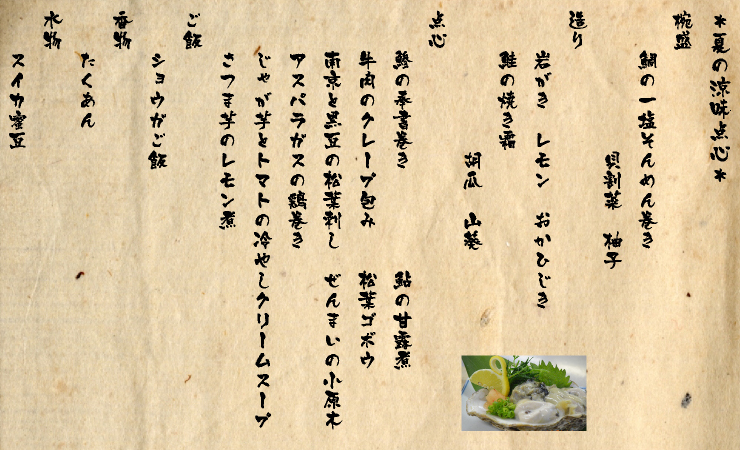 ＊夏の涼味点心＊
椀盛
鯛の一塩そんめん巻き
貝割菜　柚子
造り
岩がき　レモン　おかひじき
鮭の焼き霜
胡瓜　山葵
点心
鯵の奉書巻き　鮎の甘露煮
牛肉のクレープ包み　松葉ゴボウ
南京と黒豆の松葉刺し　ぜんまいの小原木
アスパラガスの鶏巻き
じゃが芋とトマトの冷やしクリームスープ
さつま芋のレモン煮
ご飯
ショウガご飯
香物
たくあん
水物
スイカ蜜豆